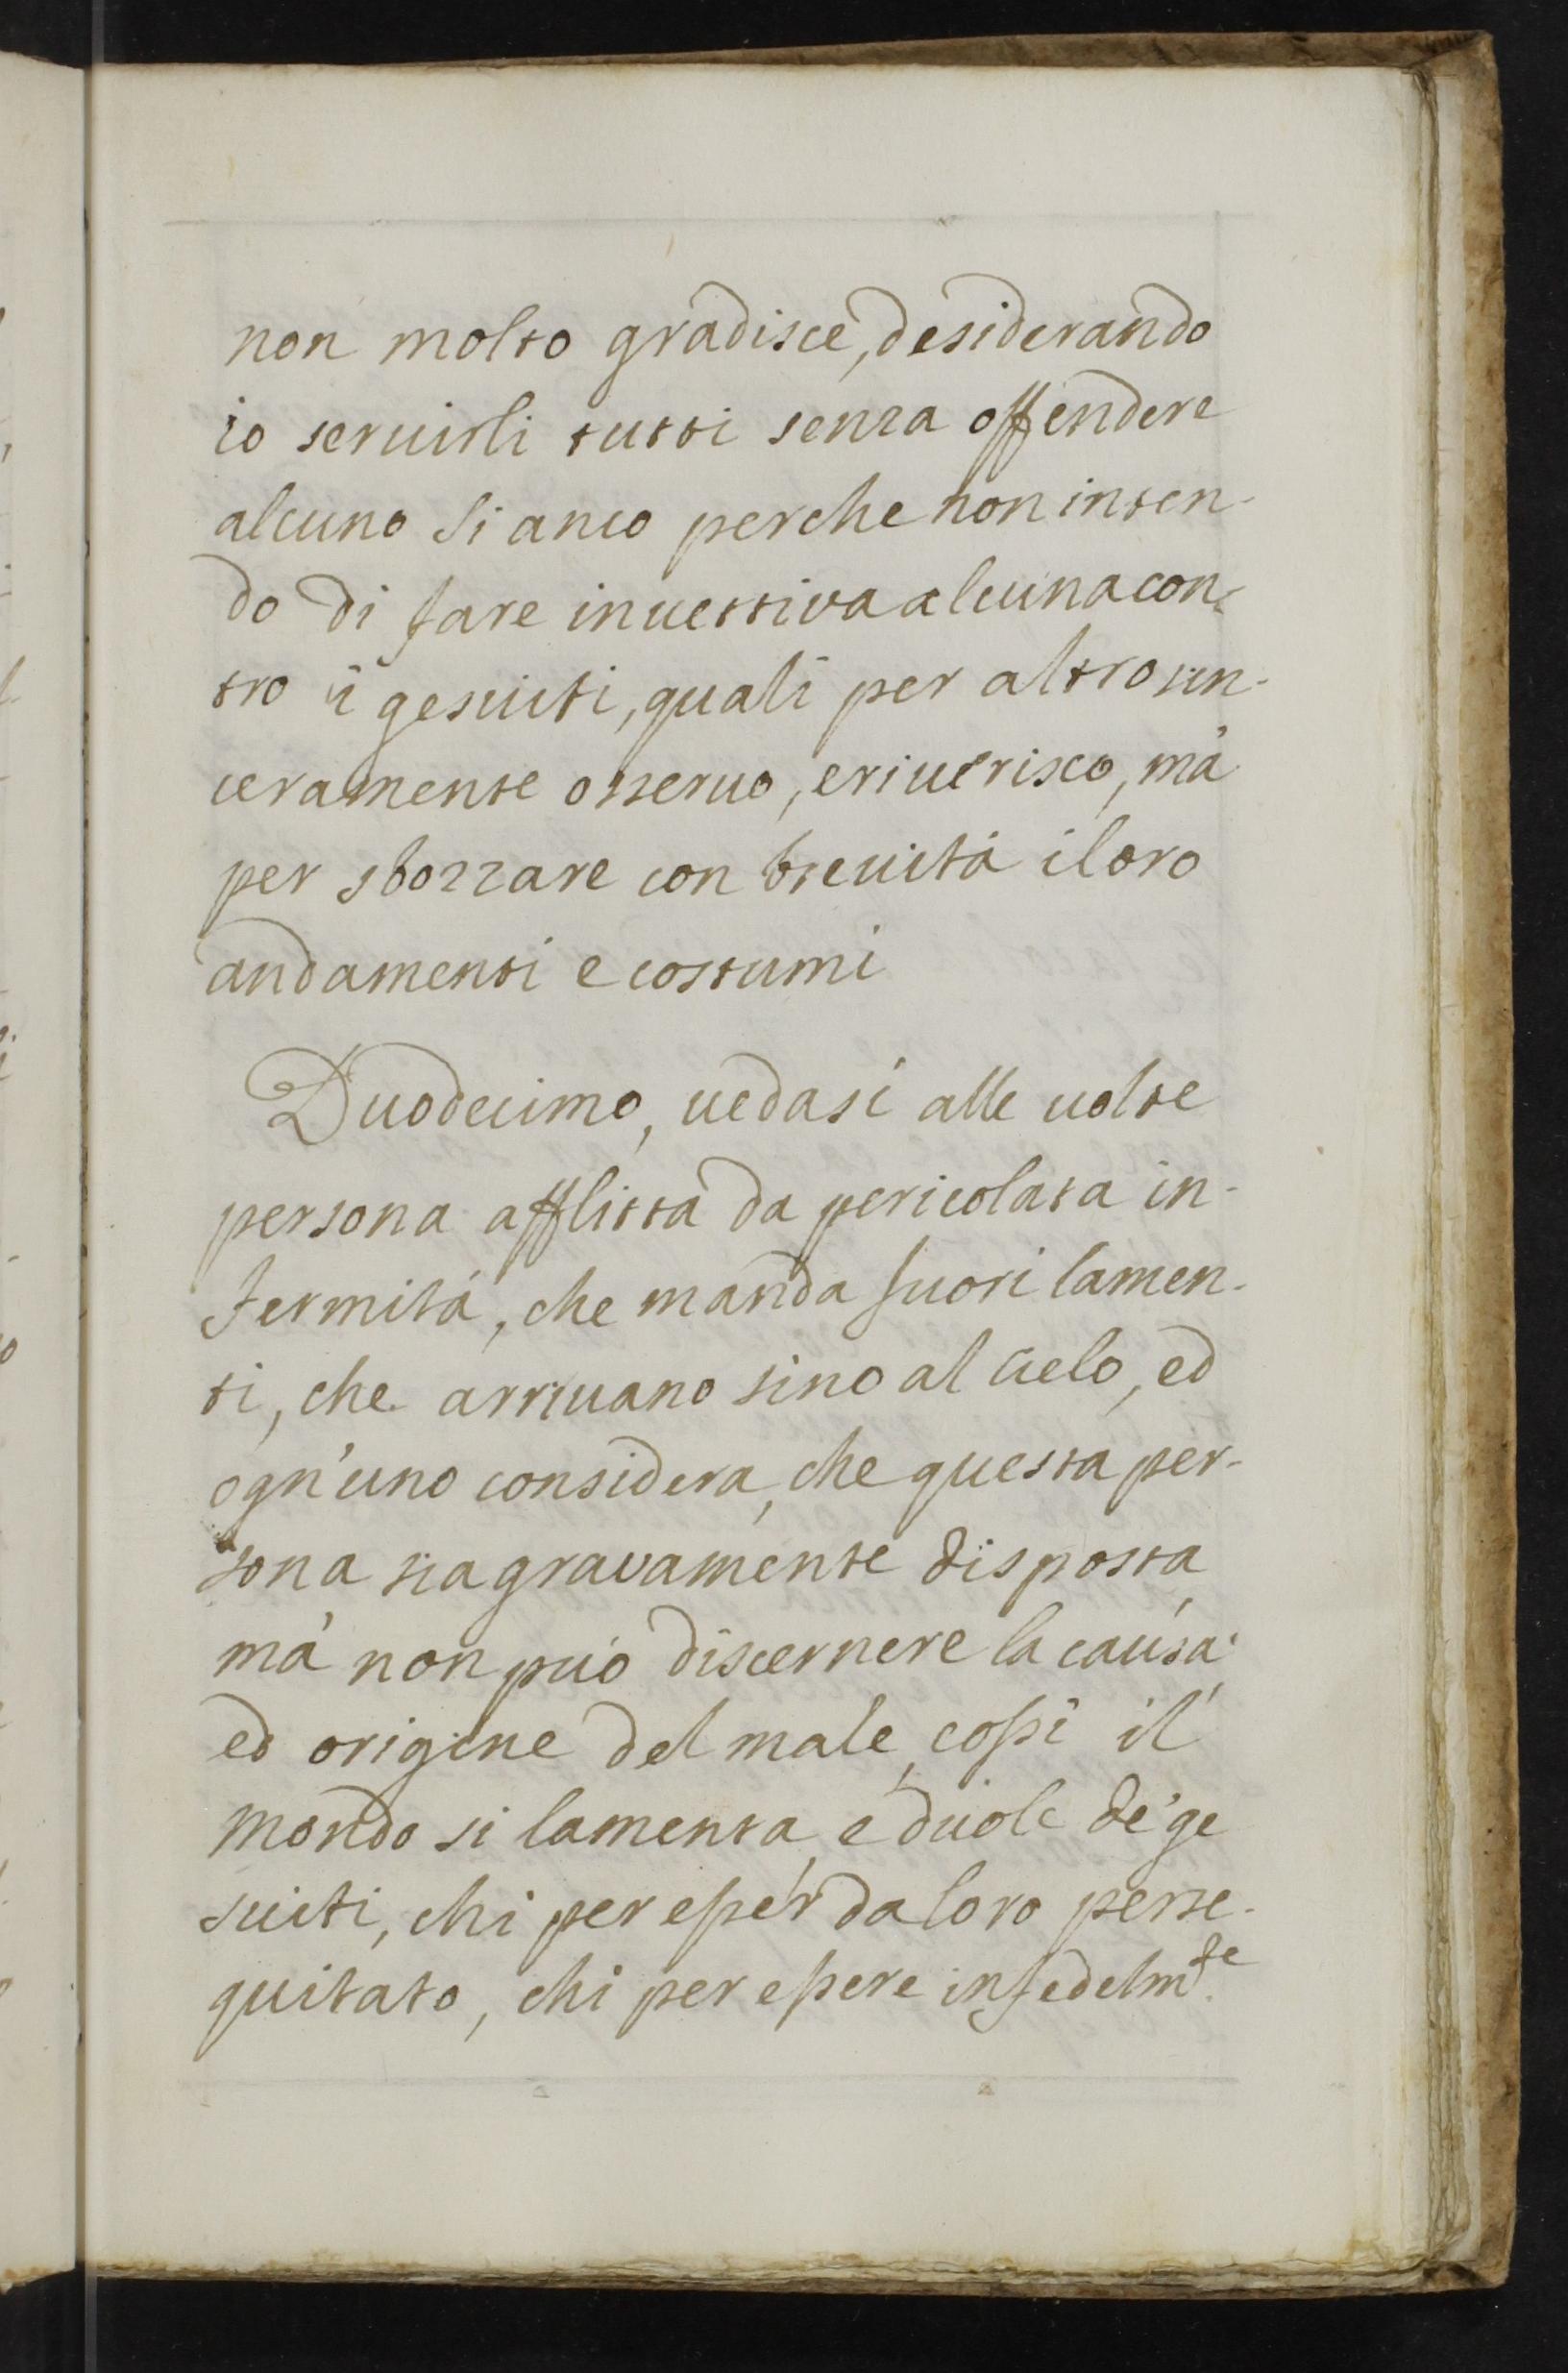 non molto gradisce, desiderando
io seruirli tutti senza offendere
alcuno si anco perche non inten-
do di fare inuettiva alcuna con-
tro i gesuiti, quali per altro sin-
ceramente osseruo, e riuerisco, mà
per sbozzare con breuità i loro
andamenti e costumi
Duodecimo, uedasi alle uolte
persona afflitta da pericolata in-
fermità, che manda fuori lamen-
ti, che arriuano sino al Cielo, ed
ogn'uno considera, che questa per-
sona sia gravamente disposta
mà non può discernere la causa
ed origine del male, cossi il
mondo si lamenta, e duole de' ge
suiti, chi per esser da loro perse-
guitato, chi per essere infedelmte.